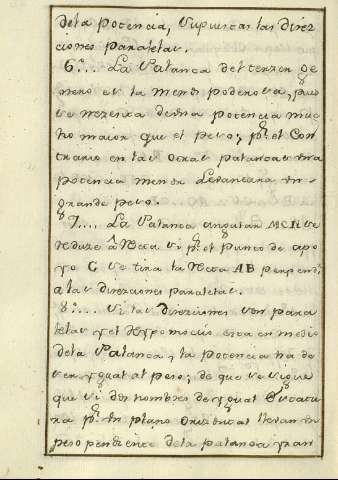 dela potencia, supuestas las direz
ciones paralelas.
6º... La Palanca del terzer ge
nero es la menos poderosa, pues
se nezesita de una potencia mu
cho maior que el peso; pr. el Con
trario en las otras palancas una
potencia menor Levantara un
grande peso.
7.... La Palanca angular MCR se
reduze à Recta si pr. el punto de apo
yo C se tira la Recta AB perpendi.
a las direziones paralelas.
8º... Si las direziones son para
lelas y el Hypomoclio esta en medio
dela Palanca, la potencia ha de
ser ygual al peso; de que se sigue
que si dos hombres de ygual Estatu
ra pr. un plano Orizontal llevan un
peso pendiente dela palanca y